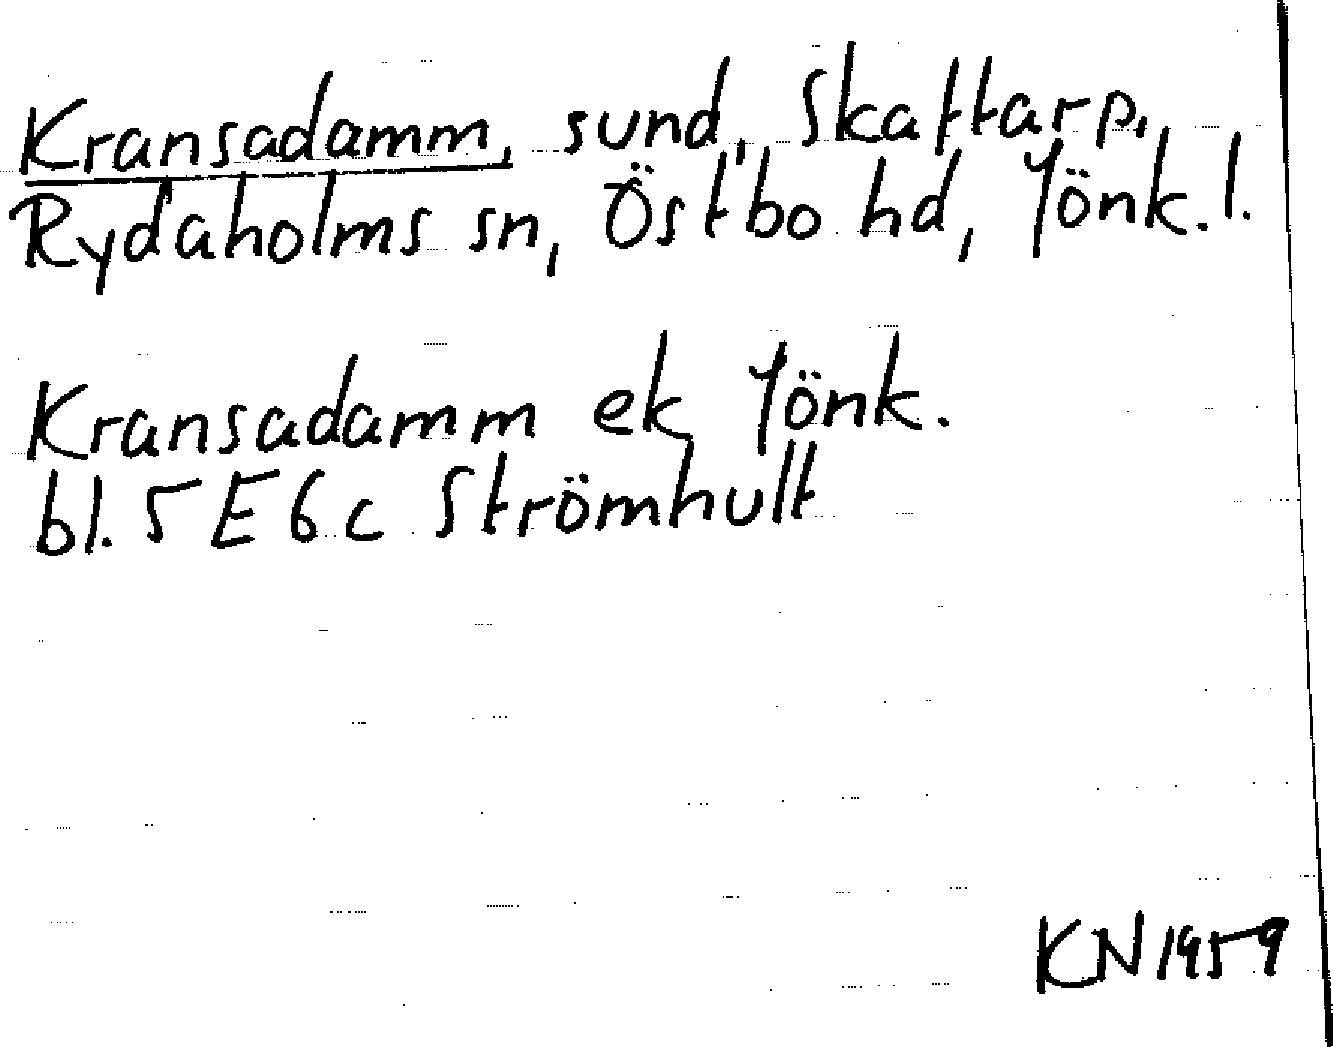 Kransadamm, sund, Skattarp,
Rydaholms sn, Östbo hd, Jönk. l.
Kransadamm ek Jönk.
bl. 5 E 6 c Strömhult
KN 1959